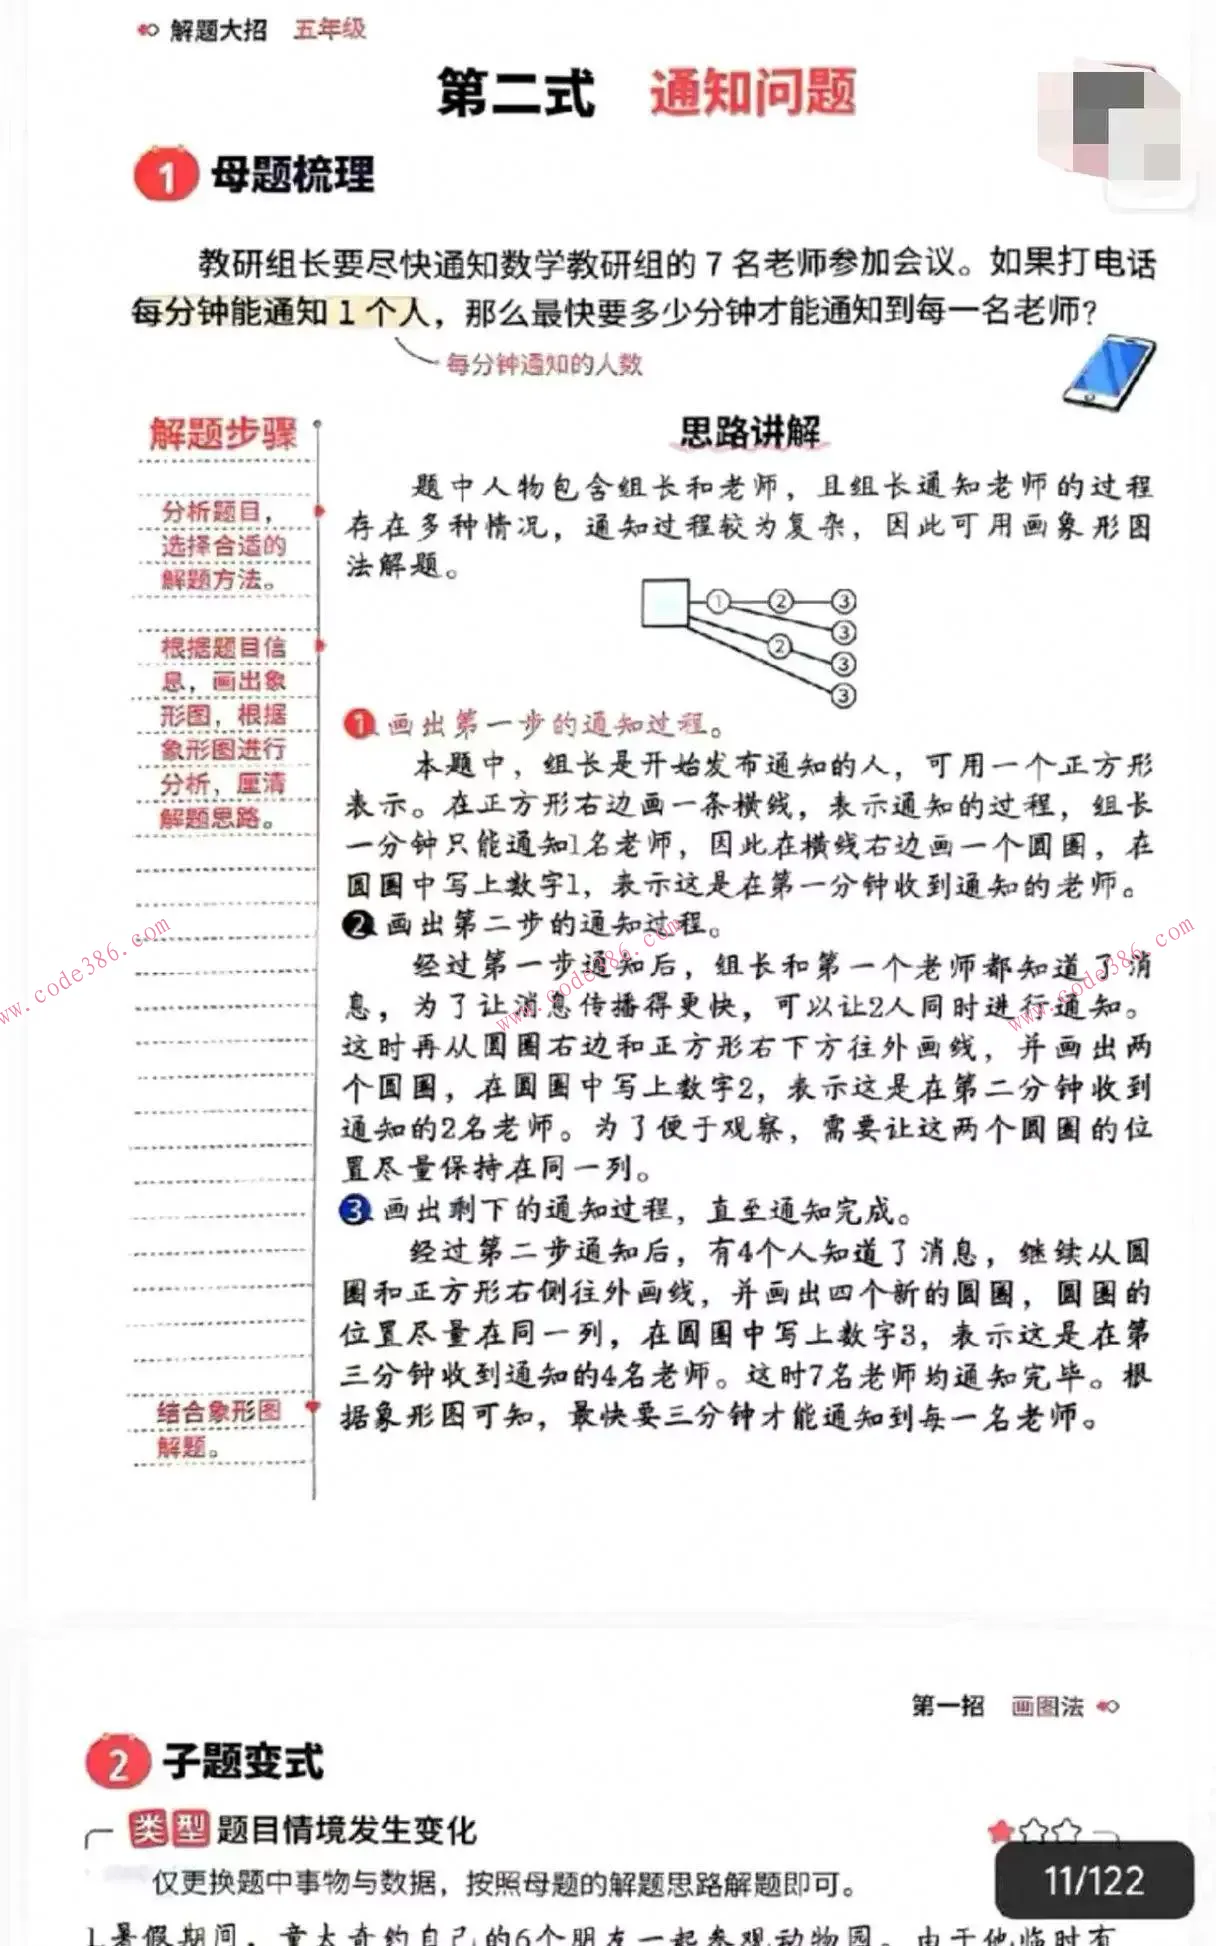 解题大招 五年级
第二式 通知问题
1 母题梳理
教研组长要尽快通知数学教研组的 7 名老师参加会议。如果打电话
每分钟能通知 1 个人，那么最快要多少分钟才能通知到每一名老师？
每分钟通知的人数
解题步骤
分析题目，
选择合适的
解题方法。
根据题目信
息，画出象
形图，根据
象形图进行
分析，厘清
解题思路。
结合象形图
解题。
思路讲解
题中人物包含组长和老师，且组长通知老师的过程
存在多种情况，通知过程较为复杂，因此可用画象形图
法解题。
① ② ③
③
② ③
③
1 画出第一步的通知过程。
本题中，组长是开始发布通知的人，可用一个正方形
表示。在正方形右边画一条横线，表示通知的过程，组长
一分钟只能通知1名老师，因此在横线右边画一个圆圈，在
圆圈中写上数字1，表示这是在第一分钟收到通知的老师。
2 画出第二步的通知过程。
经过第一步通知后，组长和第一个老师都知道了消
息，为了让消息传播得更快，可以让2人同时进行通知。
这时再从圆圈右边和正方形右下方往外画线，并画出两
个圆圈，在圆圈中写上数字2，表示这是在第二分钟收到
通知的2名老师。为了便于观察，需要让这两个圆圈的位
置尽量保持在同一列。
3 画出剩下的通知过程，直至通知完成。
经过第二步通知后，有4个人知道了消息，继续从圆
圈和正方形右侧往外画线，并画出四个新的圆圈，圆圈的
位置尽量在同一列，在圆圈中写上数字3，表示这是在第
三分钟收到通知的4名老师。这时7名老师均通知完毕。根
据象形图可知，最快要三分钟才能通知到每一名老师。
www.code386.com
www.code386.com
www.code386.com
第一招 画图法
2 子题变式
类型 题目情境发生变化
仅更换题中事物与数据，按照母题的解题思路解题即可。
11/122
1.暑假期间，童大奇约自己的6个朋友一起参观动物园。由于他临时有